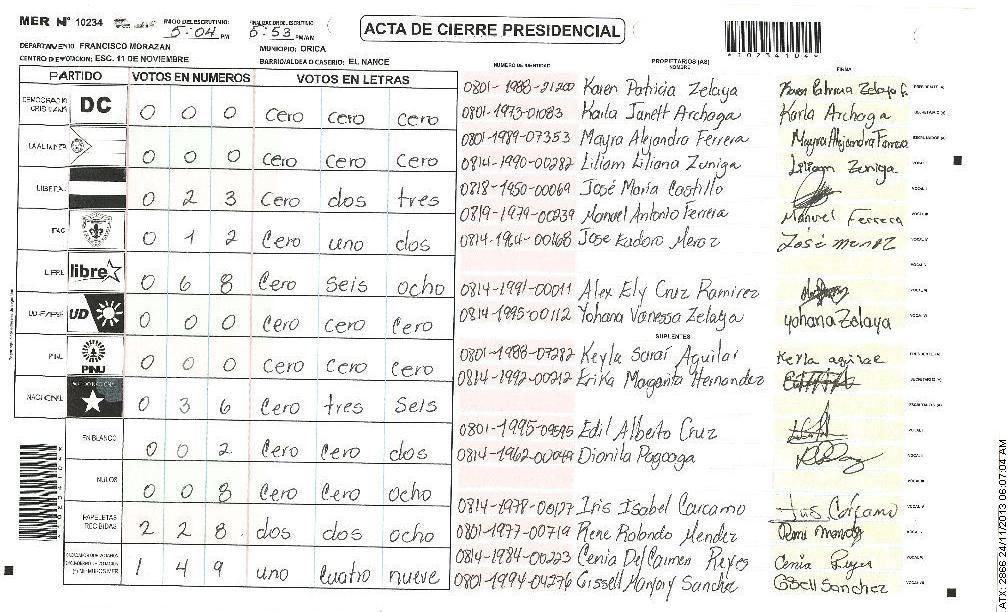 MER Nº 10234
INICIO DEL ESCRUTINIO: 5:04 PM
FINALIZACION DEL ESCRUTINIO: 5:53 PM/AM
ACTA DE CIERRE PRESIDENCIAL
DEPARTAMENTO: FRANCISCO MORAZAN
MUNICIPIO: ORICA
CENTRO DE VOTACION: ESC. 11 DE NOVIEMBRE
BARRIO/ALDEA O CASERIO: EL NANCE
PARTIDO VOTOS EN NUMEROS VOTOS EN LETRAS
DEMOCRACIA CRISTIANA DC 0 0 0 Cero cero cero
0 0 0 Cero Cero Cero
LIBERAL 0 2 3 Cero dos tres
PAC 0 1 2 Cero uno dos
LIBRE libre 0 6 8 Cero seis ocho
UD 0 0 0 Cero cero Cero
PINU PINU 0 0 0 Cero Cero Cero
NACIONAL 0 3 6 Cero tres seis
EN BLANCO 0 0 2 Cero Cero dos
NULOS 0 0 8 Cero Cero ocho
PAPELETAS RECIBIDAS 2 2 8 dos dos ocho
1 4 9 uno cuatro nueve
NUMERO DE IDENTIDAD PROPIETARIOS (AS) NOMBRE FIRMA
0801-1988-21200 Karen Patricia Zelaya
0801-1973-01083 Karla Janett Archaga Karla Archaga
0801-1989-07353 Mayra Alejandra Ferrera Mayra Alejandra Ferrera
0814-1990-00282 Liliam Liliana Zuniga Liliam Zuniga
0818-1950-00069 José María Castillo
0819-1979-00239 Manuel Antonio Ferrera Manuel Ferrera
José
0814-1991-00011 Alex Ely Cruz Ramirez
0814-1995-00112 Yohana Vanessa Zelaya yohana Zelaya
SUPLENTES
0801-1988-07282 Keyla Sarai Aguilar Keyla
0814-1992-00212 Erika Margarita Hernandez
Edil Alberto Cruz
Dionila
0814-1978-00127 Iris Isabel Carcamo
0801-1977-00719 Rene Robando Mendez
0814-1984-00223 Cenia Del Carmen Reyes Cenia
0801-1994-04276 Gissell Sanchez Gissell Sanchez
24/11/2013 06:07:04 AM